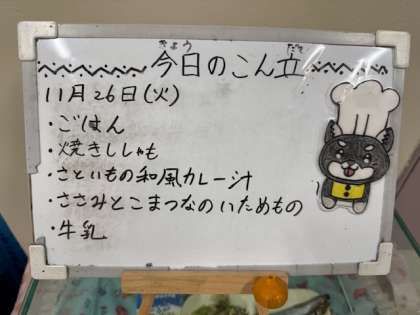 きょう だて
今日のこん立
11月26日(火)
・ごはん
・焼きししゃも
・さといもの和風カレー汁
・ささみとこまつなのいためもの
・牛乳